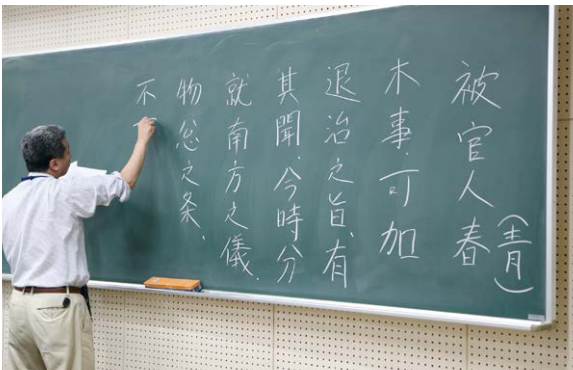 被官人春
(青)
木事、可加
退治之旨、有
其聞、今時分
就南方之儀、
物忩之条、
不